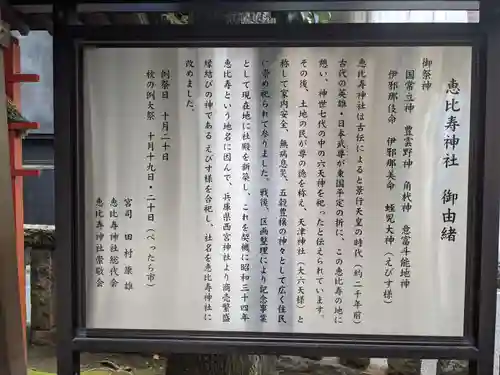 恵比寿神社 御由緒
御祭神
国常立神 豊雲野神 角杙神 意富斗能地神
伊邪那伎命 伊邪那美命 蛭児大神(えびす様)
恵比寿神社は古伝によると景行天皇の時代(約二千年前)
古代の英雄・日本武尊が東国平定の折に、この恵比寿の地に
憩い、神世七代の中の六天神を祀ったと伝えられています。
その後、土地の民が尊の徳を称え、天津神社(大六天様)と
称して家内安全、無病息災、五穀豊穣の神々として広く住民
に崇め祀られて参りました。戦後、区画整理により記念事業
として現在地に社殿を新築し、これを契機に昭和三十四年
恵比寿という地名に因んで、兵庫県西宮神社より商売繁盛
縁結びの神であるえびす様を合祀し、社名を恵比寿神社に
改めました。
例祭日 十月二十日
秋の例大祭 十月十九日・二十日(べったら市)
宮司 田村 康雄
恵比寿神社総代会
恵比寿神社崇敬会